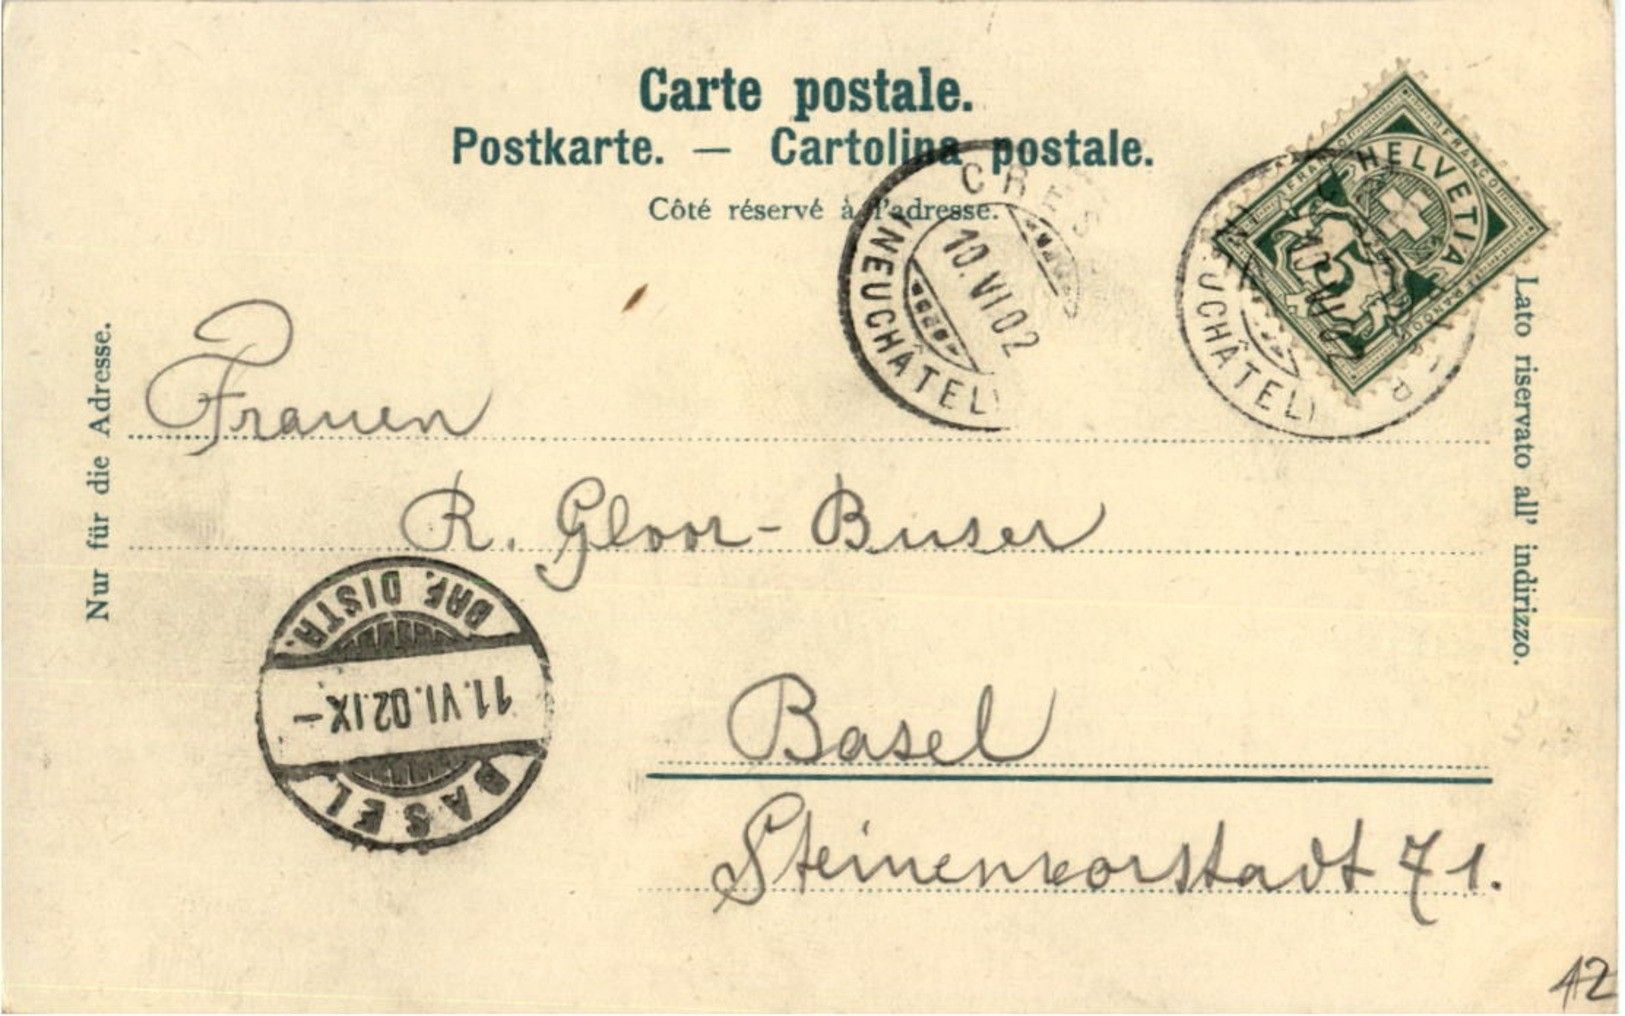 Carte postale.
Postkarte. — Cartolina postale.
Côté réservé à l'adresse.
Nur für die Adresse.
Lato riservato all' indirizzo.
HELVETIA
FRANCO
5
10.VI.02
(NEUCHÂTEL)
10.VI.02
UCHÂTEL)
Frauen
R. Gloor-Buser
Basel
Steinenvorstadt 71.
BRF. DISTR.
11.VI.02.IX-
BASEL
12